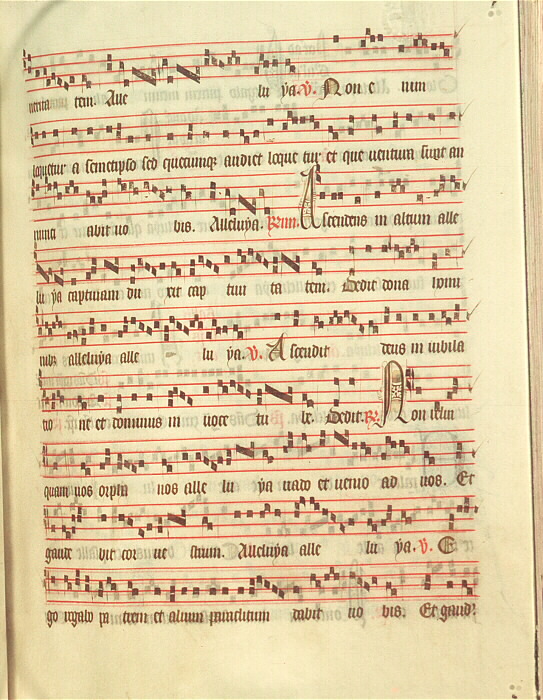 veritatem. Alle lu ya. V. Non e nim
loquetur a semetipso sed quecumqz audiet loque tur et que ventura sunt an
nunci abit vo bis. Alleluya. Ascendens in altum alle
lu ya captiuam du xit cap tiui ta tem. Dedit dona homi
nibz alleluya alle lu ya. V. Ascendit deus in iubila
tio ne et dominus in uoce tu be. Dedit. R. Non relin
quam uos orpha nos alle lu ya uado et uenio ad uos. Et
gaude bit cor ue strum. Alleluya alle lu ya. V. E
go rogabo pa trem et alium paraclitum dabit uo bis. Et gaud